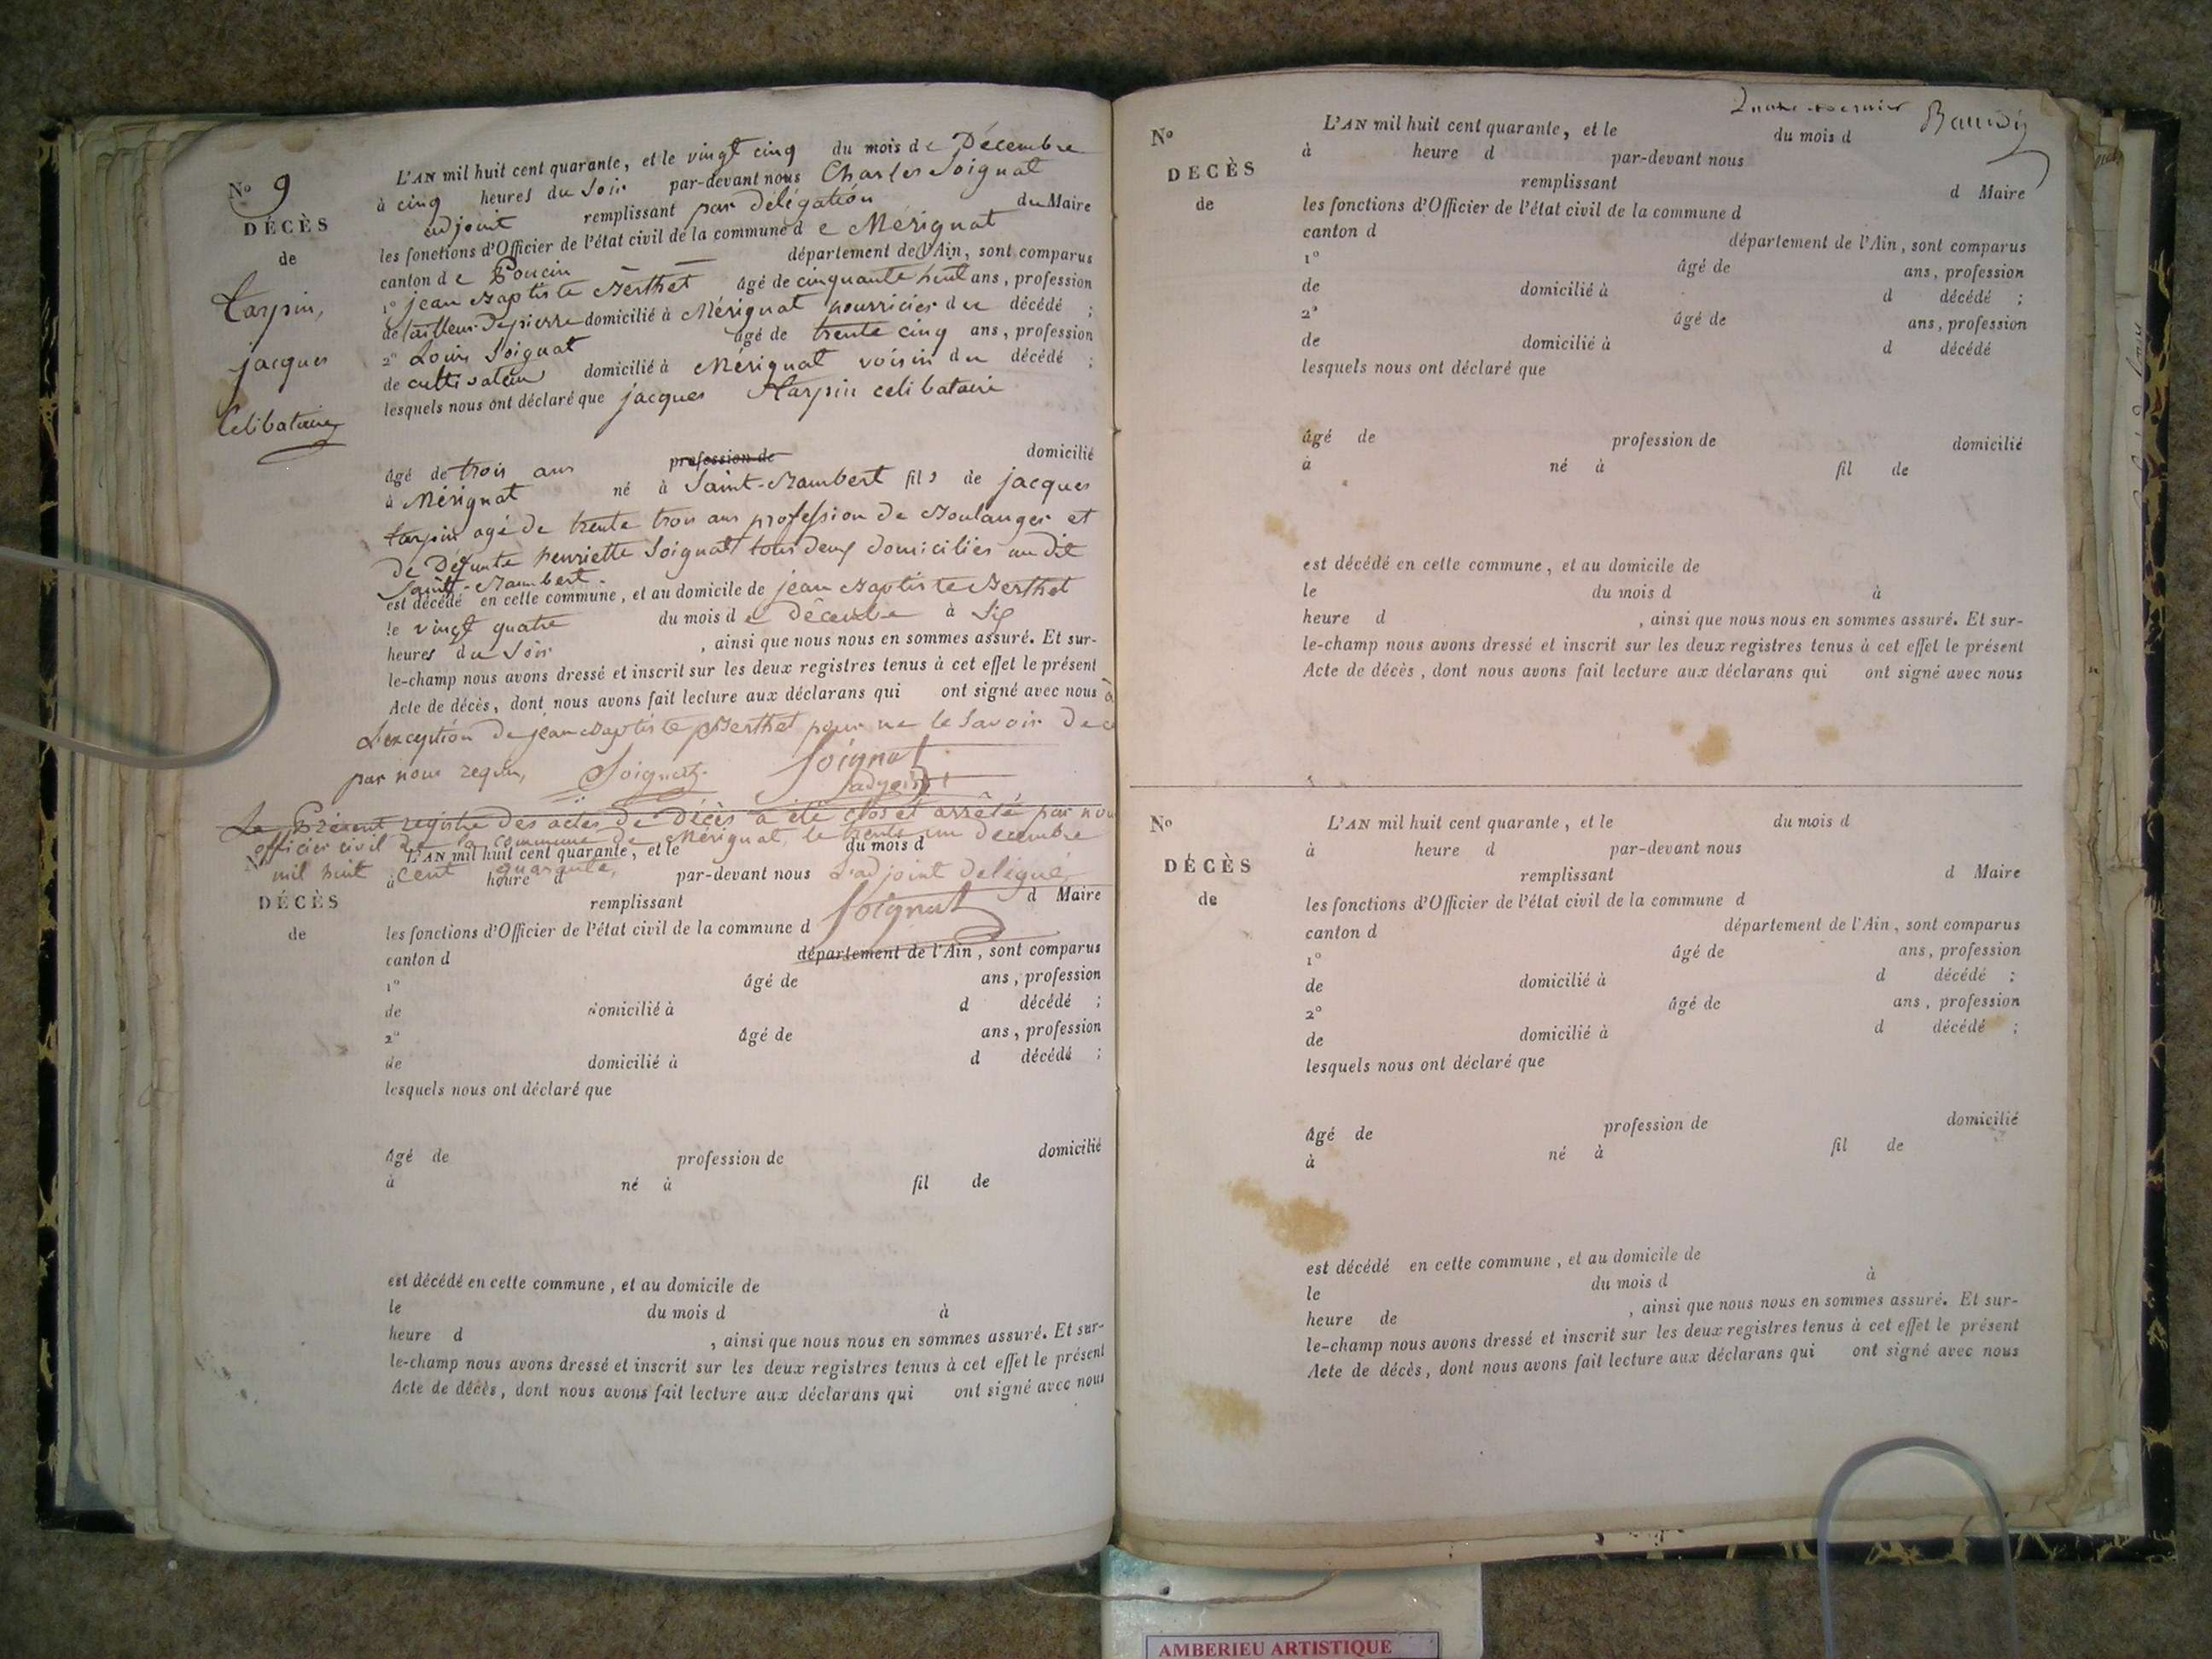 N° 9
DÉCÈS
de
Tarpin,
jacques
Celibataire
L'AN mil huit cent quarante, et le vingt cinq du mois de Décembre
à cinq heures du Soir par-devant nous Charles Soignat
adjoint remplissant par délégation du Maire
les fonctions d'Officier de l'état civil de la commune de Mérignat
canton de Poncin département de l'Ain, sont comparus
1° jean Baptiste Berthet âgé de cinquante huit ans, profession
de tailleur de pierre domicilié à Mérignat nourricier du décédé ;
2° Louis Soignat âgé de trente cinq ans, profession
de cultivateur domicilié à Mérignat voisin du décédé ;
lesquels nous ont déclaré que jacques Tarpin celibataire
âgé de trois ans profession de domicilié
à Mérignat né à Saint-Rambert fils de jacques
tarpin agé de trente trois ans profession de Boulanger et
de Défunte henriette Soignat tous deux domiciliés au dit
Saint-Rambert.
est décédé en cette commune, et au domicile de jean Baptiste Berthet
le vingt quatre du mois de décembre à Six
heures du Soir , ainsi que nous nous en sommes assuré. Et sur-
le-champ nous avons dressé et inscrit sur les deux registres tenus à cet effet le présent
Acte de décès, dont nous avons fait lecture aux déclarans qui ont signé avec nous à
L'exception de jean Baptiste Berthet pour ne le Savoir de ce
par nous requis, Soignat Soignat
adjoint
Le Présent registre des actes de Décès a été clos et arrêté par nous
officier civil de la commune de Mérignat, le trente un decembre
mil huit cent quarante, L'adjoint delegué,
Soignat
L'AN mil huit cent quarante, et le du mois d
à heure d par-devant nous
DÉCÈS
remplissant d Maire
de
les fonctions d'Officier de l'état civil de la commune d
canton d département de l'Ain, sont comparus
1° âgé de ans, profession
de domicilié à d décédé ;
2° âgé de ans, profession
de domicilié à d décédé ;
lesquels nous ont déclaré que
âgé de profession de domicilié
à né à fil de
est décédé en cette commune, et au domicile de
le du mois d à
heure d , ainsi que nous nous en sommes assuré. Et sur-
le-champ nous avons dressé et inscrit sur les deux registres tenus à cet effet le présent
Acte de décès, dont nous avons fait lecture aux déclarans qui ont signé avec nous
N°
DECÈS
de
L'AN mil huit cent quarante, et le du mois d
à heure d par-devant nous
remplissant d Maire
les fonctions d'Officier de l'état civil de la commune d
canton d département de l'Ain, sont comparus
1° âgé de ans, profession
de domicilié à d décédé ;
2° âgé de ans, profession
de domicilié à d décédé
lesquels nous ont déclaré que
âgé de profession de domicilié
à né à fil de
est décédé en cette commune, et au domicile de
le du mois d à
heure d , ainsi que nous nous en sommes assuré. Et sur-
le-champ nous avons dressé et inscrit sur les deux registres tenus à cet effet le présent
Acte de décès, dont nous avons fait lecture aux déclarans qui ont signé avec nous
N°
DÉCÈS
de
L'AN mil huit cent quarante, et le du mois d
à heure d par-devant nous
remplissant d Maire
les fonctions d'Officier de l'état civil de la commune d
canton d département de l'Ain, sont comparus
1° âgé de ans, profession
de domicilié à d décédé ;
2° âgé de ans, profession
de domicilié à d décédé ;
lesquels nous ont déclaré que
âgé de profession de domicilié
à né à fil de
est décédé en cette commune, et au domicile de
le du mois d à
heure de , ainsi que nous nous en sommes assuré. Et sur-
le-champ nous avons dressé et inscrit sur les deux registres tenus à cet effet le présent
Acte de décès, dont nous avons fait lecture aux déclarans qui ont signé avec nous
AMBERIEU ARTISTIQUE